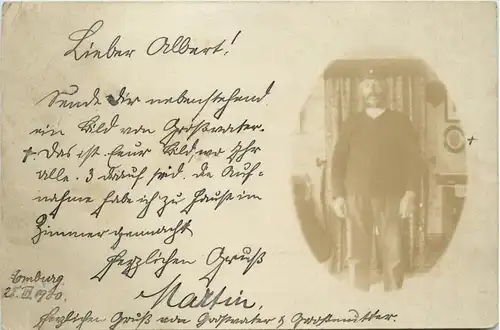 Lieber Albert!
Sende Dir nebenstehend
ein Bild von Großvater.
+. Das ist Euer Bild, wo Ihr
alle 3 drauf seid. Die Auf-
nahme habe ich zu Hause im
Zimmer gemacht
Herzlichen Gruß
Martin.
Homburg
1900.
Herzlichen Gruß von Großvater & Großmutter.
+